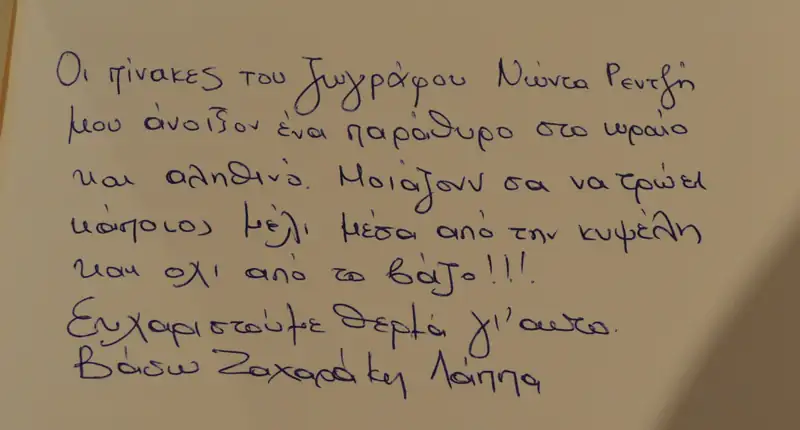 Οι πίνακες του ζωγράφου Νώντα Ρεντζή
μου άνοιξαν ένα παράθυρο στο ωραίο
και αληθινό. Μοιάζουν σα να τρώει
κάποιος μέλι μέσα από την κυψέλη
και οχι από το βάζο!!!.
Ευχαριστούμε θερμά γι' αυτο.
Βάσω Ζαχαράκη Λάππα